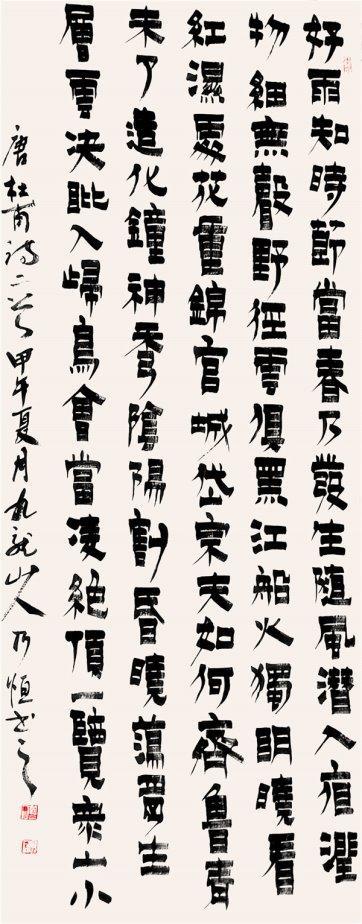 好雨知時節當春乃發生隨風潛入夜潤
物細無聲野徑雲俱黑江船火獨明曉看
紅濕處花重錦官城岱宗夫如何齊魯青
未了造化鐘神秀陰陽割昏曉蕩胸生
層雲決眥入歸鳥會當凌絕頂一覽眾山小
唐杜甫詩二首甲午夏月九龍山人乃恒書之